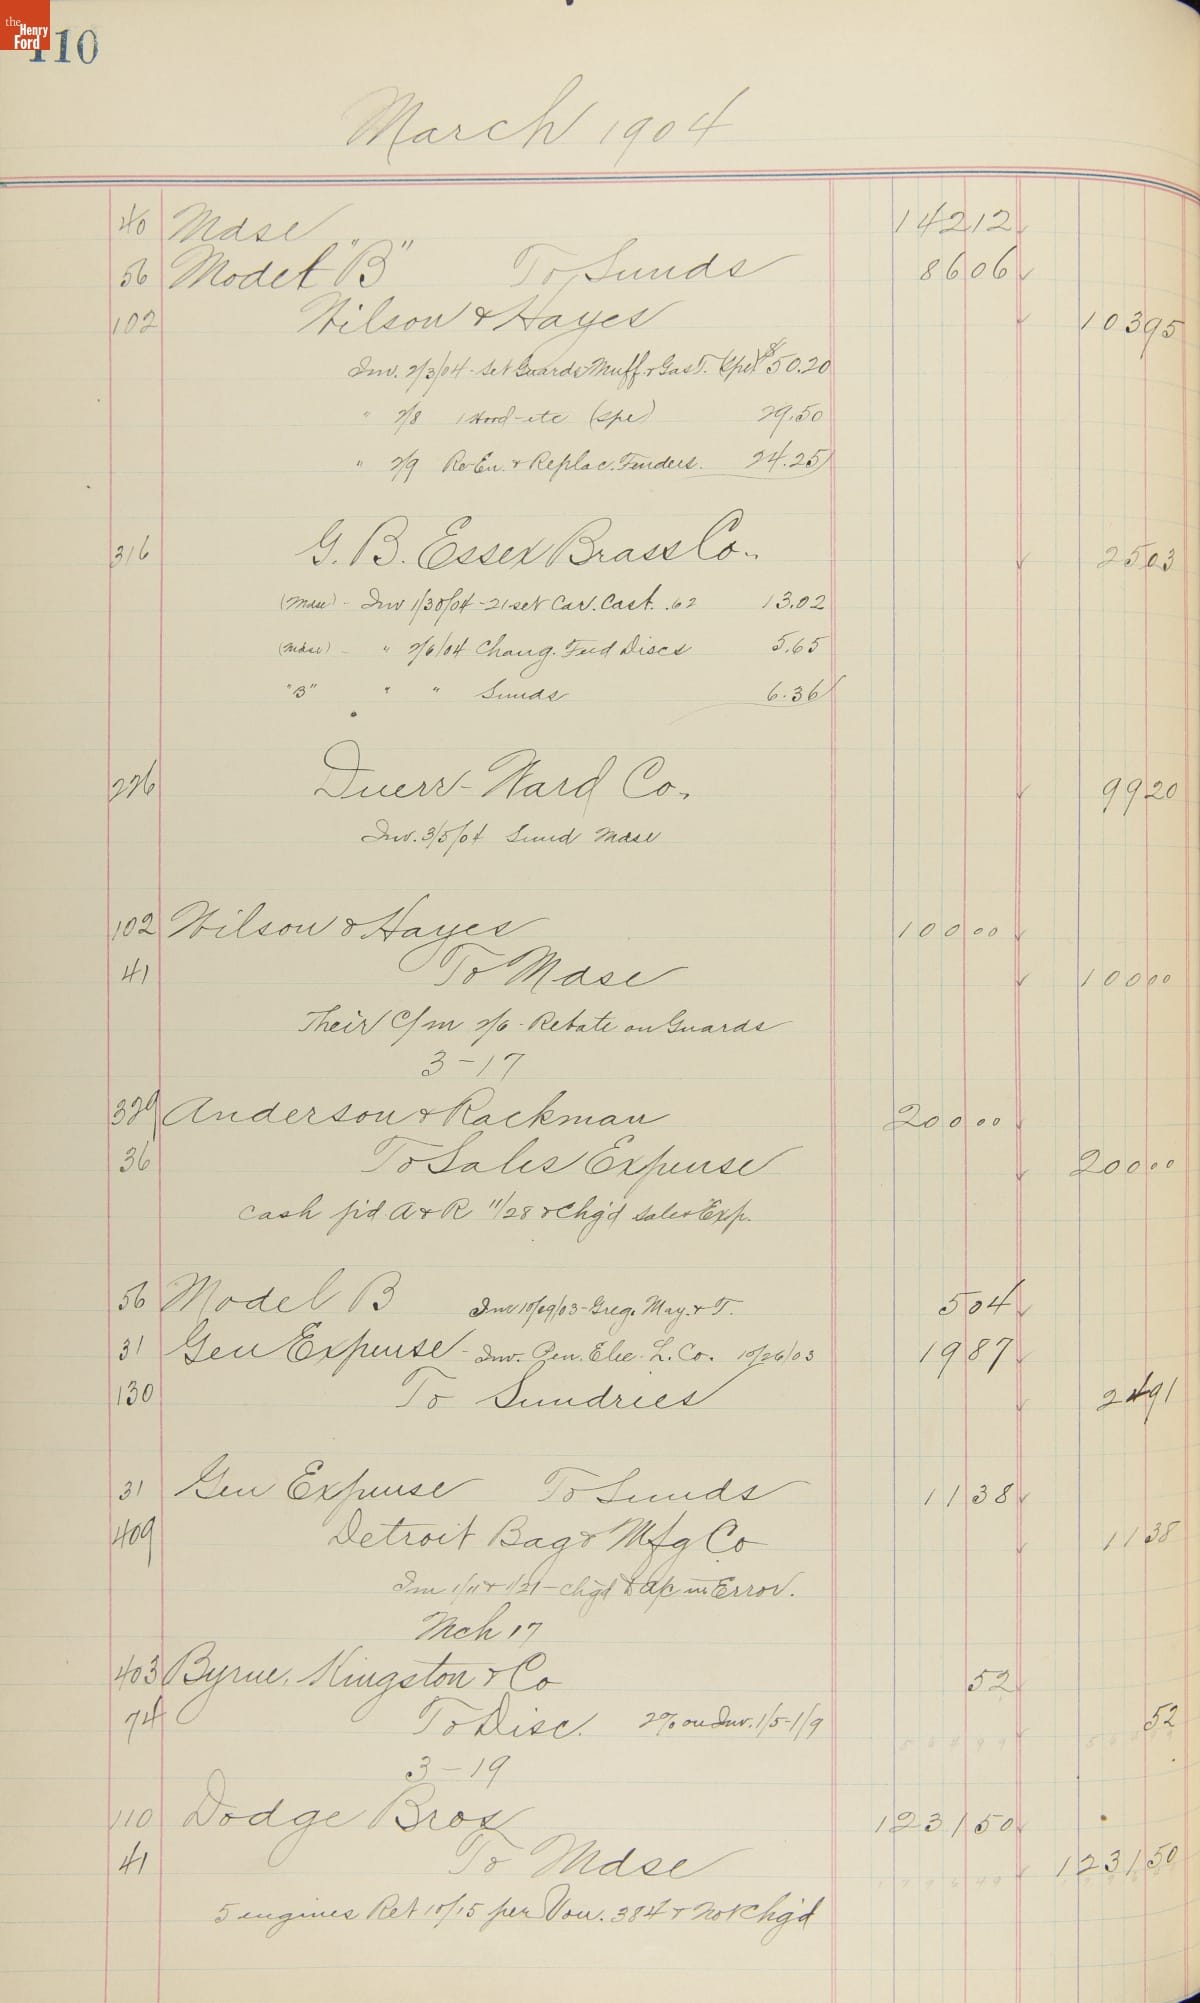 the Henry Ford
110
March 1904
40 Mdse 142 12
56 Model "B" To Sunds 86 06
102 Wilson & Hayes 103 95
Inv. 2/3/04 - Set Guards Muff. & Gas T. (Spe) $50.20
" 2/8 1 Hood - etc (Spe) 29.50
" 2/9 Re-En. & Replac. Fenders. 24.25
316 G. B. Essex Brass Co. 25 03
(Mdse) - Inv 1/30/04 - 21 set Car. Cast. .62 13.02
(Mdse) - " 2/6/04 Chang. Feed Discs 5.65
"B" " " Sunds 6.36
226 Duerr-Ward Co. 99 20
Inv. 3/5/04 Sund Mdse
102 Wilson & Hayes 100 00
41 To Mdse 100 00
Their C/m 2/6 - Rebate on Guards
3-17
329 Anderson & Rackman 200 00
36 To Sales Expense 200 00
Cash p'd A & R 11/28 & Chg'd Sales Exp.
56 Model B Inv 10/29/03 - Greg. May. & T. 5 04
31 Gen Expense - Inv. Pen. Elec. L. Co. 10/26/03 19 87
130 To Sundries 24 91
31 Gen Expense To Sunds 11 38
409 Detroit Bag & Mfg Co 11 38
Inv 1/11 & 1/21 - chg'd in Error.
Mch 17
403 Byrne, Kingston & Co 52
74 To Disc. 2% on Inv. 1/5-1/9 52
3-19
110 Dodge Bros 1231 50
41 To Mdse 1231 50
5 engines Ret 10/15 per Vou. 384 & Not Chg'd